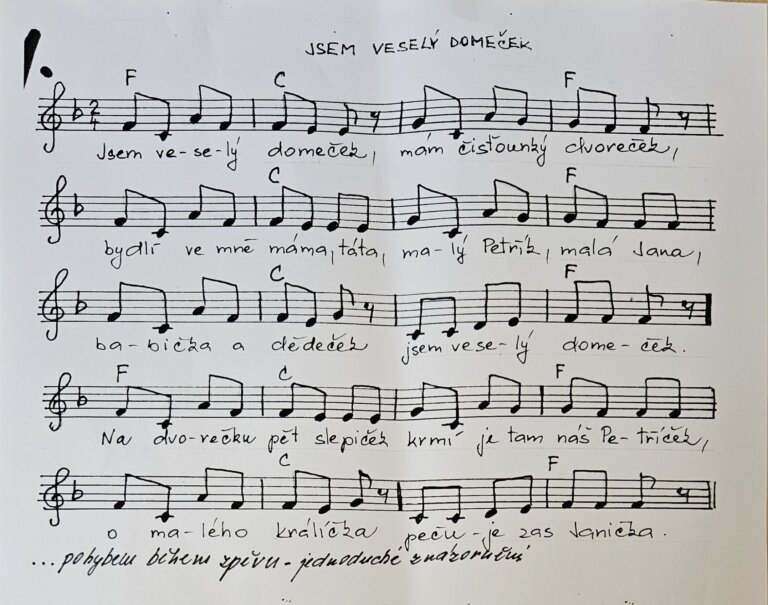 JSEM VESELÝ DOMEČEK
1.
F C F
2
4
Jsem ve-se-lý domeček, mám čisťounký dvoreček,
C F
bydlí ve mně máma, táta, ma-lý Petřík, malá Jana,
C F
ba-bička a dědeček jsem vese-lý dome-ček.
F C F
Na dvo-rečku pět slepiček krmí je tam náš Pe-tříček,
C F
o ma-lého králíčka peču-je zas Janička.
...pohybem během zpěvu - jednoduché znázornění